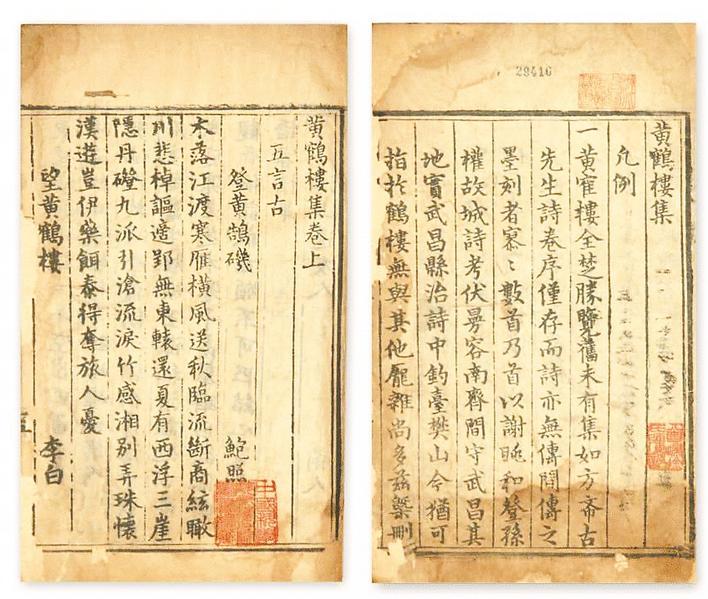 黃鶴樓集
凡例
一黃寉樓全楚勝覽舊未有集如方齋古
先生詩卷序僅存而詩亦無傳間傳之
墨刻者寡〻數首乃首以謝眺和登孫
權故城詩考伏曼容南齊間守武昌其
地實武昌縣治詩中釣臺樊山今猶可
指於鶴樓無與其他龐雜尚多茲槩刪
29416
黃鶴樓集卷上
五言古
登黃鵠磯
鮑照
木落江渡寒雁橫風送秋臨流斷商絃瞰
川悲棹謳適郢無東轅還夏有西浮三崖
隱丹磴九派引滄流淚竹感湘別弄珠懷
漢遊豈伊藥餌泰得奪旅人憂
望黃鶴樓
李白